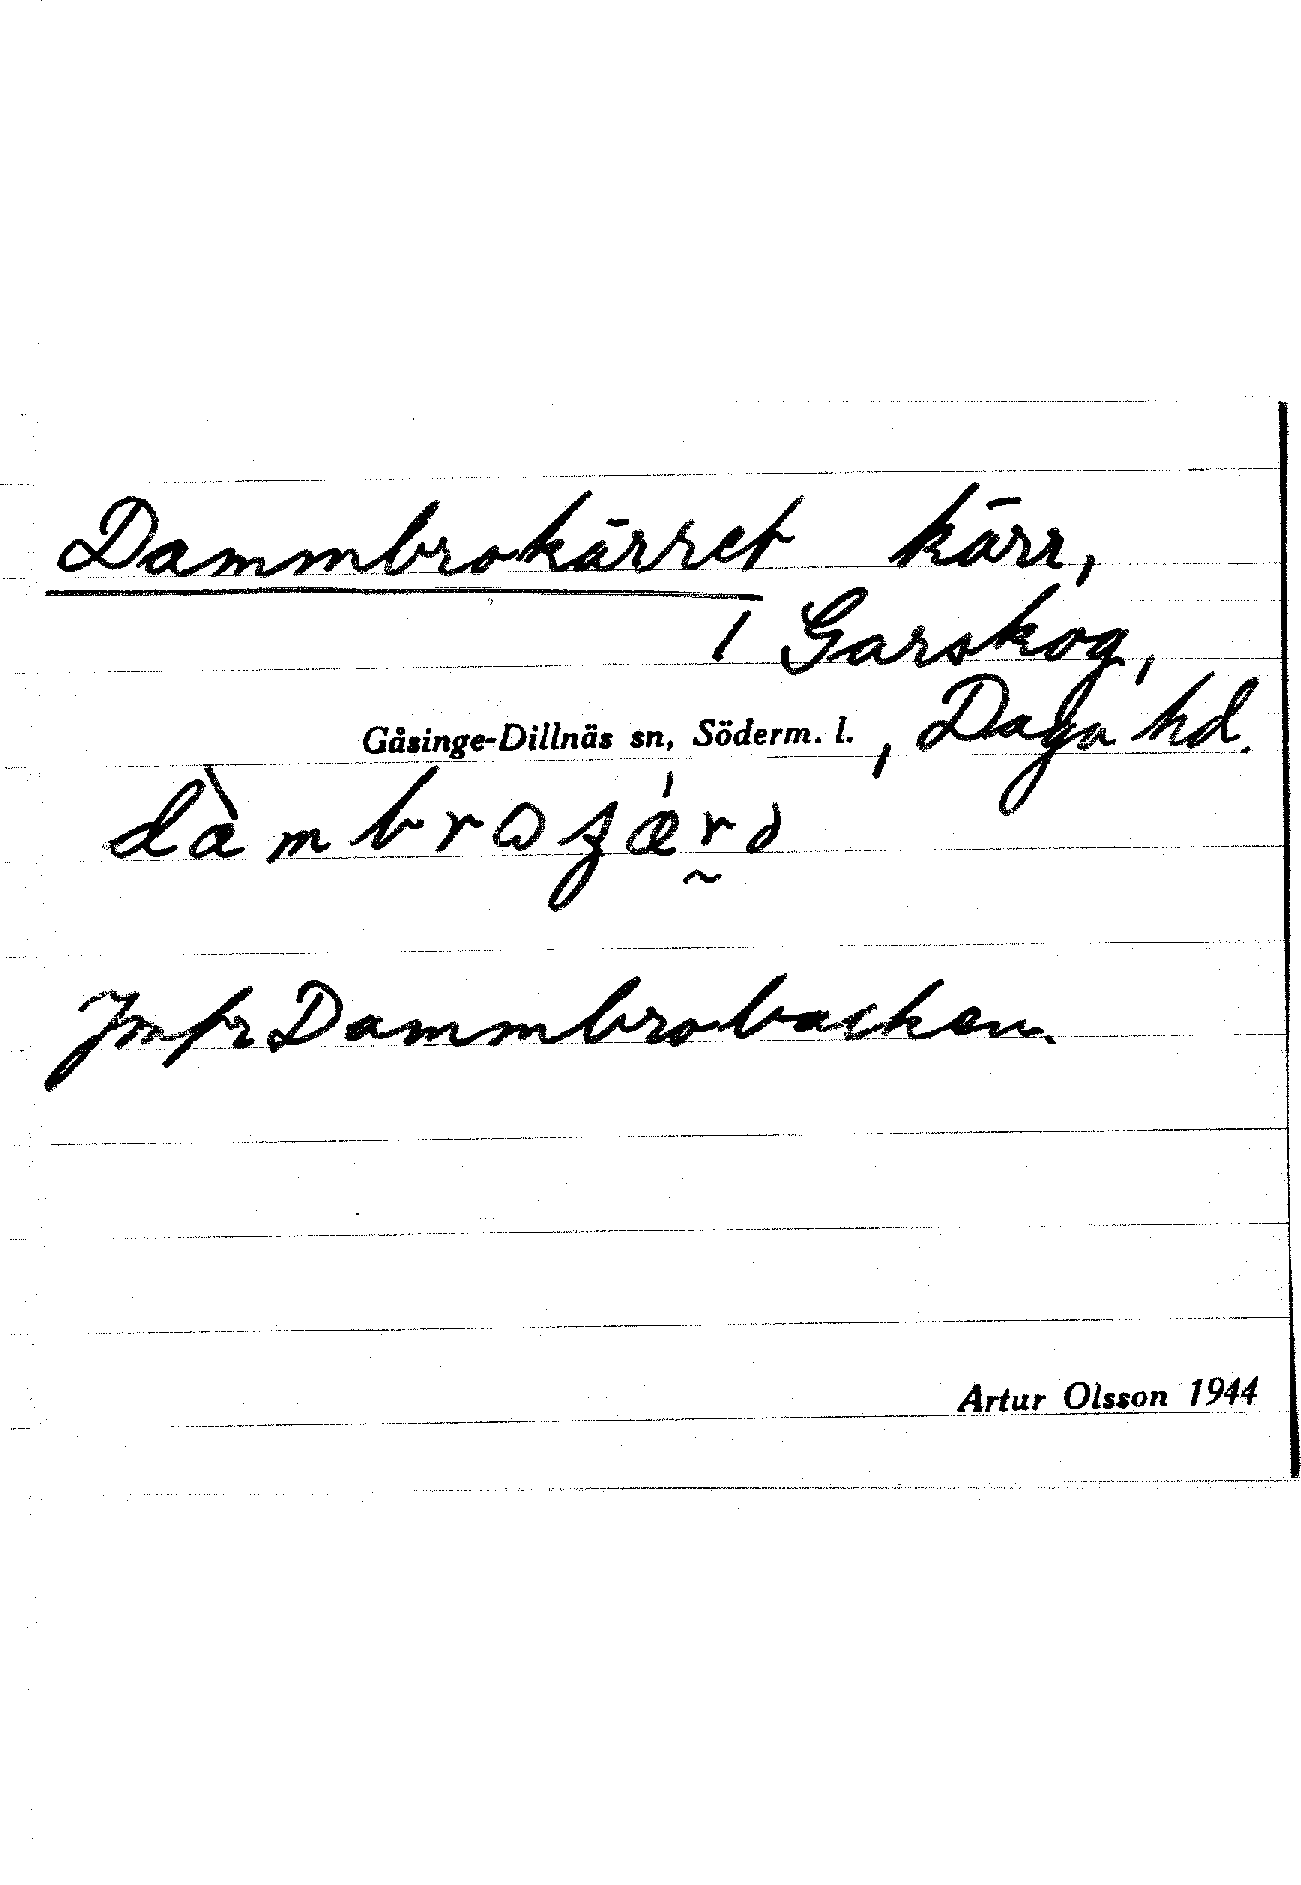 Dammbrokärret kärr,
/ Garskog,
Gåsinge-Dillnäs sn, Söderm. l. , Daga hd.
Jmfr Dammbrobacken.
Artur Olsson 1944